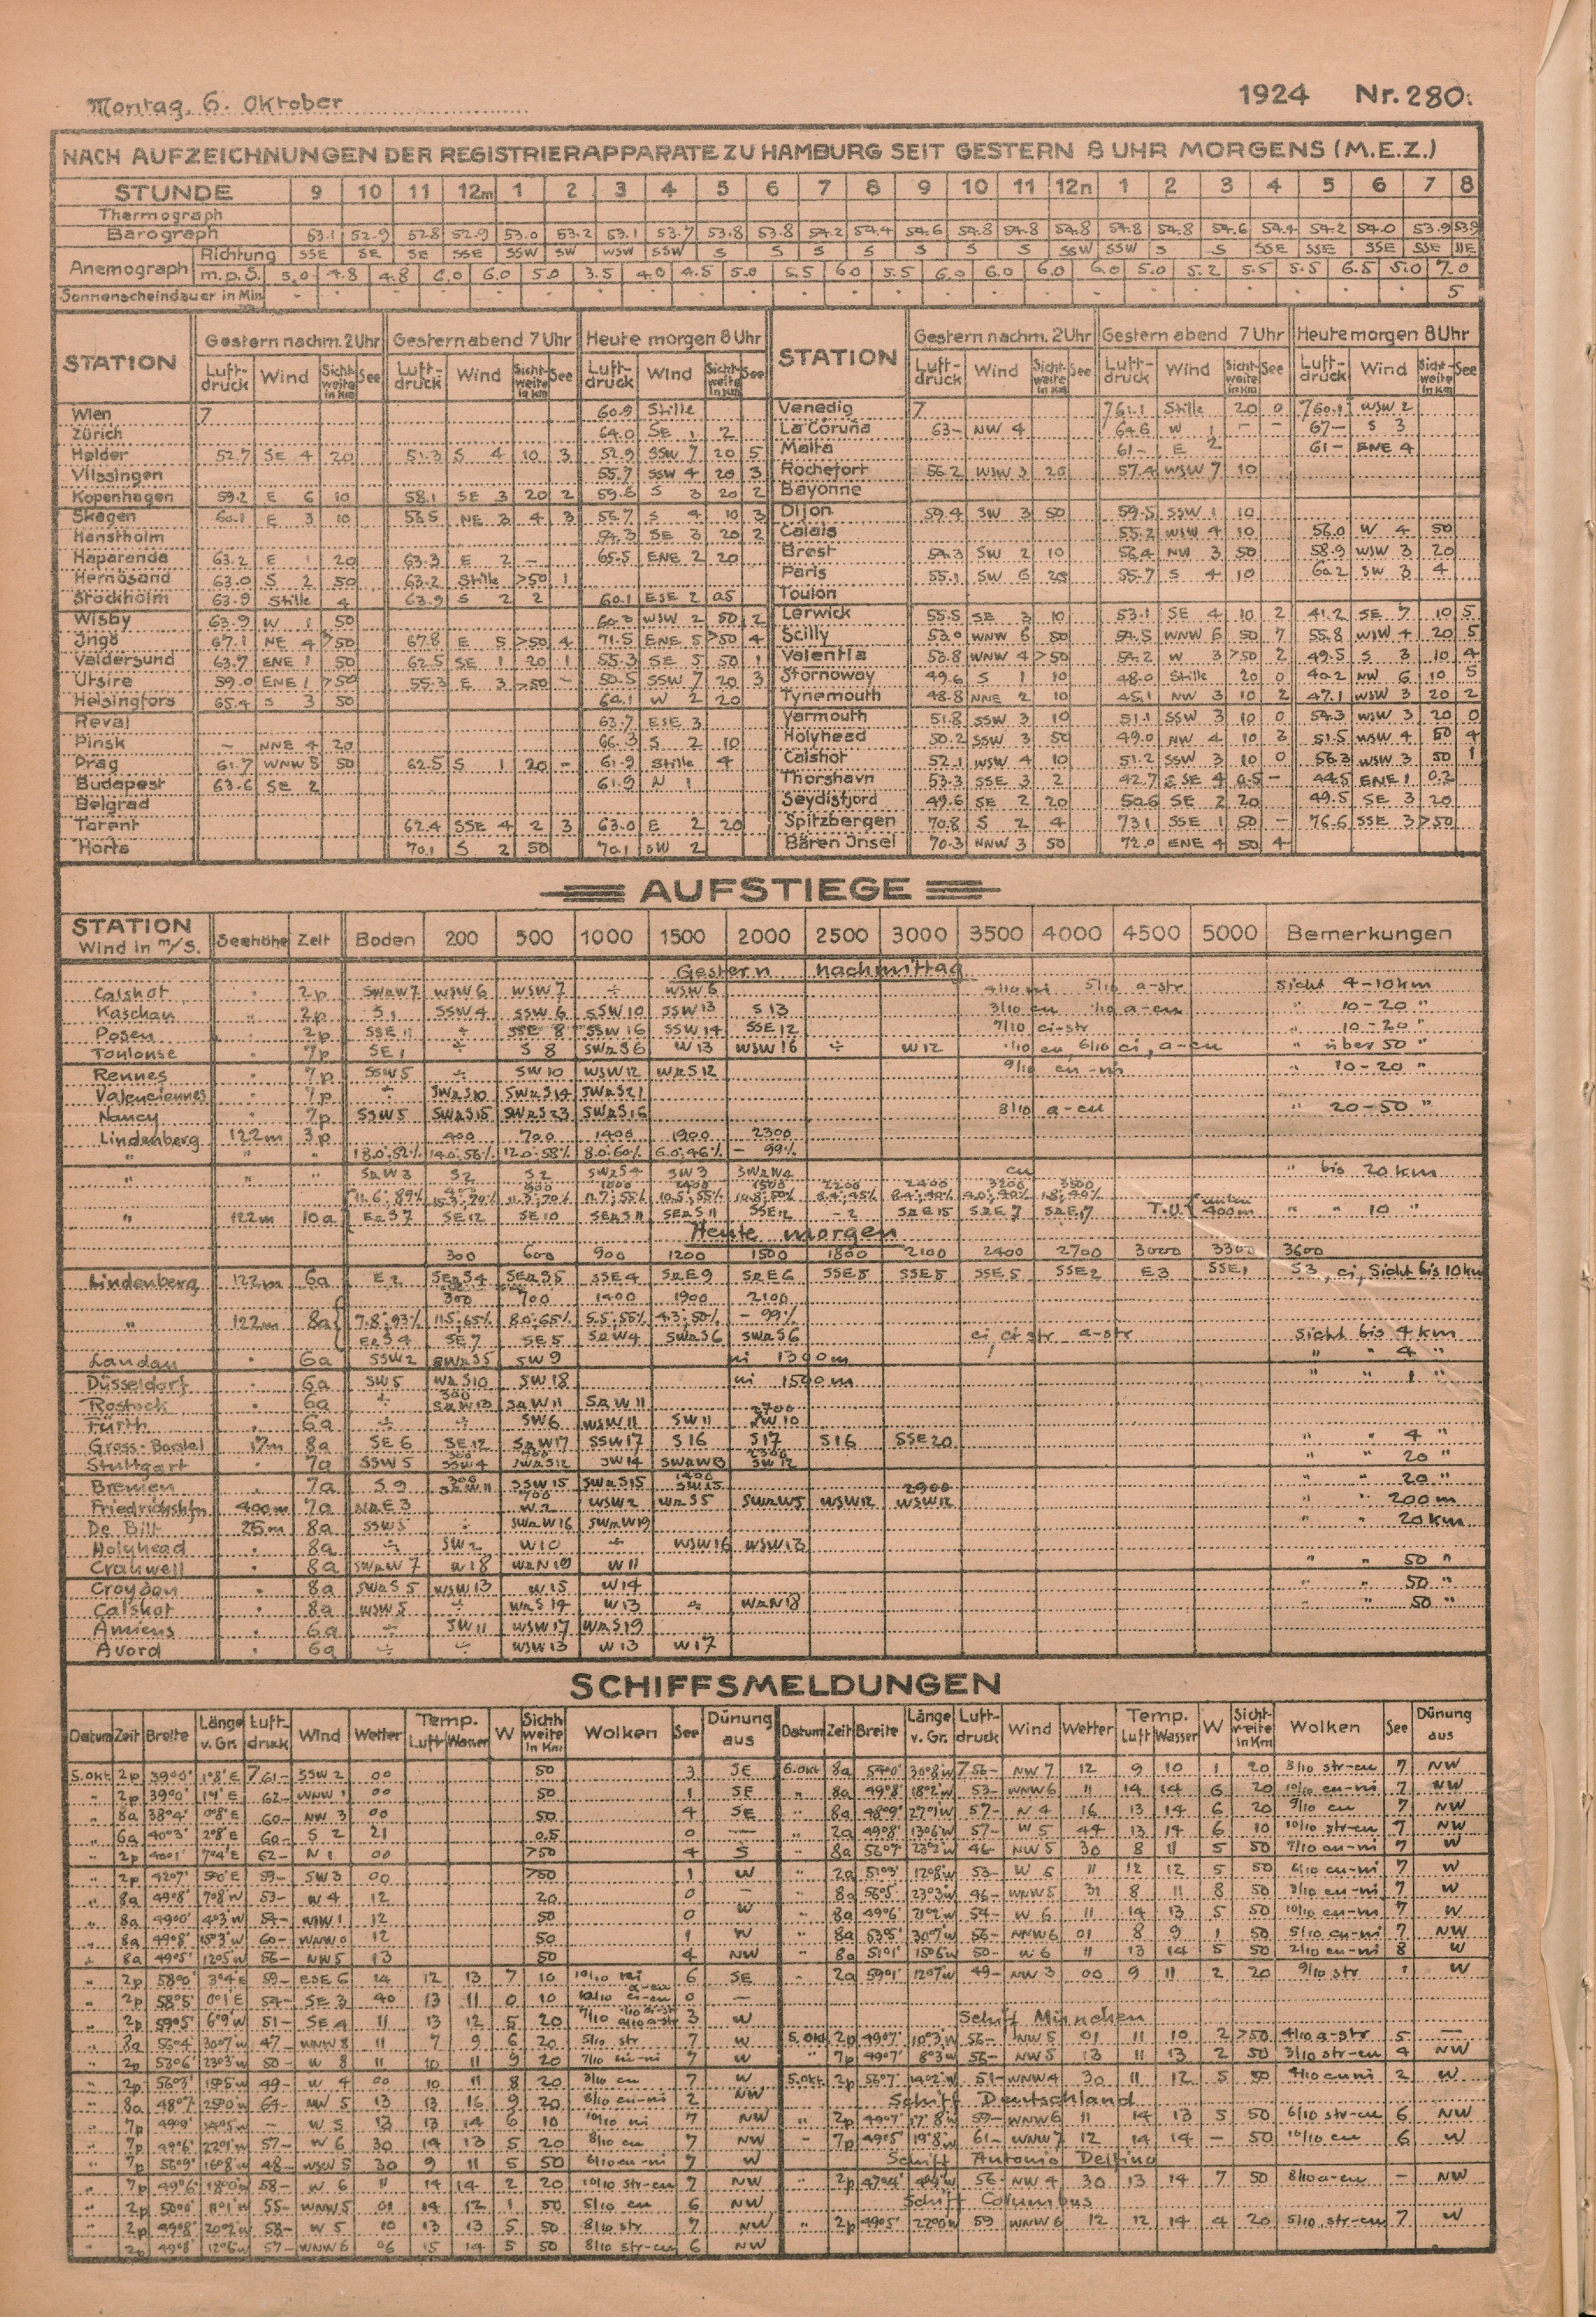 Montag, 6. Oktober 1924 Nr. 280.
NACH AUFZEICHNUNGEN DER REGISTRIERAPPARATE ZU HAMBURG SEIT GESTERN 8 UHR MORGENS (M.E.Z.)
STUNDE 9 10 11 12m 1 2 3 4 5 6 7 8 9 10 11 12n 1 2 3 4 5 6 7 8
Thermograph
Barograph 53.1 52.9 52.8 52.9 53.0 53.2 53.1 53.7 53.8 53.8 54.2 54.4 54.6 54.8 54.8 54.8 54.8 54.8 54.6 54.4 54.2 54.0 53.9 53.9
Anemograph Richtung SSE SE SE SSE SSW SW WSW SSW S S S S S S S SSW SSW S S SSE SSE SSE SSE SSE
m.p.S. 5.0 4.8 4.8 6.0 6.0 5.0 3.5 4.0 4.5 5.0 5.5 6.0 5.5 6.0 6.0 6.0 6.0 5.0 5.2 5.5 5.5 6.5 5.0 7.0
Sonnenscheindauer in Min 5
STATION Gestern nachm. 2 Uhr Gestern abend 7 Uhr Heute morgen 8 Uhr STATION Gestern nachm. 2 Uhr Gestern abend 7 Uhr Heute morgen 8 Uhr
Luft-druck Wind Sicht-weite in Km See Luft-druck Wind Sicht-weite in Km See Luft-druck Wind Sicht-weite in Km See Luft-druck Wind Sicht-weite in Km See Luft-druck Wind Sicht-weite in Km See Luft-druck Wind Sicht-weite in Km See
Wien 7 60.9 Stille Venedig 7 761.1 Stille 20 0 760.1 WSW 2
Zürich 64.0 SE 1 2 La Coruña 63- NW 4 64.6 W 1 - - 67- S 3
Helder 52.7 SE 4 20 51.3 S 4 10 3 52.9 SSW 7 20 5 Malta 61- E 2 61- ENE 4
Vlissingen 55.7 SSW 4 20 3 Rochefort 56.2 WSW 3 20 57.4 WSW 7 10
Kopenhagen 59.2 E 6 10 58.1 SE 3 20 2 59.6 S 3 20 2 Bayonne
Skagen 60.1 E 3 10 58.5 NE 3 4 3 56.7 S 4 10 3 Dijon 59.4 SW 3 50 59.5 SSW 1 10
Hanstholm 54.3 SE 3 20 2 Calais 55.2 WSW 4 10 56.0 W 4 50
Haparanda 63.2 E 1 20 63.3 E 2 - 65.5 ENE 2 20 Brest 54.3 SW 2 10 56.4 NW 3 50 58.9 WSW 3 20
Hernösand 63.0 S 2 50 63.2 Stille >50 1 Paris 55.1 SW 6 20 55.7 S 4 10 60.2 SW 3 4
Stockholm 63.9 Stille 4 63.9 S 2 2 60.1 ESE 2 0.5 Toulon
Wisby 63.9 W 1 50 WSW 2 50 2 Lerwick 55.5 SE 3 10 53.1 SE 4 10 2 41.2 SE 7 10 5
Ingö 67.1 NE 4 >50 67.8 E 5 >50 4 71.5 ENE 5 >50 4 Scilly 53.0 WNW 6 50 54.5 WNW 6 50 7 55.8 WSW 4 20 5
Valdersund 63.7 ENE 1 50 62.5 SE 1 20 1 55.3 SE 5 50 1 Valentia 53.8 WNW 4 >50 54.2 W 3 >50 2 49.5 S 3 10 4
Utsire 59.0 ENE 1 >50 55.3 E 3 >50 - 50.5 SSW 7 20 3 Stornoway 49.6 S 1 10 48.0 Stille 20 0 40.2 NW 6 10 5
Helsingfors 65.4 S 3 50 64.1 W 2 20 Tynemouth 48.8 NNE 2 10 45.1 NW 3 10 2 47.1 WSW 3 20 2
Reval 63.7 ESE 3 Yarmouth 51.8 SSW 3 10 51.1 SSW 3 10 0 54.3 WSW 3 20 0
Pinsk - NNE 4 20 66.3 S 2 10 Holyhead 50.2 SSW 3 50 49.0 NW 4 10 3 51.5 WSW 4 50 4
Prag 61.7 WNW 5 50 62.5 S 1 20 - 61.9 Stille 4 Calshot 52.1 WSW 4 10 51.2 SSW 3 10 0 56.3 WSW 3 50 1
Budapest 63.6 SE 2 61.9 N 1 Thorshavn 53.3 SSE 3 2 42.7 ESE 4 0.5 - 44.5 ENE 1 0.2
Belgrad Seydisfjord 49.6 SE 2 20 50.6 SE 2 20 49.5 SE 3 20
Tarent 62.4 SSE 4 2 3 63.0 E 2 20 Spitzbergen 70.8 S 2 4 73.1 SSE 1 50 - 76.6 SSE 3 >50
Horta 70.1 S 2 50 70.1 SW 2 Bären Insel 70.3 NNW 3 50 72.0 ENE 4 50 4
AUFSTIEGE
STATION Wind in m/S. Seehöhe Zeit Boden 200 500 1000 1500 2000 2500 3000 3500 4000 4500 5000 Bemerkungen
Gestern nachmittag
Calshot 2p SWzW7 WSW6 WSW7 ÷ WSW6 4/10 ni 5/10 a-str Sicht 4-10km
Kaschau 2p S1 SSW4 SSW6 SSW10 SSW13 S13 3/10 cu 1/10 a-cu " 10-20 "
Posen 2p SSE11 ÷ SSE8 SSW16 SSW14 SSE12 7/10 ci-str " 10-20 "
Toulouse 7p SE1 ÷ S8 SWzS6 W13 WSW16 ÷ W12 1/10 cu, 6/10 ci, a-cu " über 50 "
Rennes 7p SSW5 ÷ SW10 WSW12 WzS12 9/10 cu-ni " 10-20 "
Valenciennes 7p ÷ SWzS10 SWzS14 SWzS21
Nancy 7p SSW5 SWzS15 SWzS23 SWzS16 8/10 a-cu " 20-50 "
Lindenberg 122m 3p 400 700 1400 1900 2300
" " " 18.0;52% 14.0;56% 12.0;58% 8.0;60% 6.0;46% - 99%
" " SzW3 S2 S2 SWzS4 SW3 SWzW4 cu " bis 20km
2200 2400 3200 3500
11.6;89% 11.3;70% 11.7;55% 10.5;55% 8.4;45% 8.4;40% 4.0;40% 1.8;40%
" 122m 10a EzS7 SE12 SE10 SEzS11 SEzS11 SSE12 -2 SzE15 SzE7 SzE17 T.U. unten 400m " " 10 "
Heute morgen
300 600 900 1200 1500 1800 2100 2400 2700 3000 3300 3600
Lindenberg 122m 6a E2 SEzS4 SEzS5 SSE4 SzE9 SzE6 SSE5 SSE5 SSE5 SSE2 E3 SSE1 S3, ci, Sicht bis 10km
300 700 1400 1900 2100
" 122m 8a 7.8;93% 11.5;65% 8.0;65% 5.5;55% 4.3;50% - 99%
EzS4 SE7 SE5 SzW4 SWzS6 SWzS6 ci, ci-str a-str Sicht bis 4km
Landau 6a SSW2 SWzS5 SW9 ni 1300m " " 4 "
Düsseldorf 6a SW5 WzS10 SW18 ni 1500m " " 1 "
Rostock 6a ÷ 300 SzW13 SzW11 SzW11
Fürth 6a ÷ ÷ SW6 WSW11 SW11 2700 SW10
Gross-Borstel 17m 8a SE6 SE12 SzW17 SSW17 S16 S17 S16 SSE20 " " 4 "
Stuttgart 7a SSW5 300 SSW4 SWzS12 SW14 SWzW13 2300 SW12 " " 20 "
Bremen 7a S9 300 SzW11 SSW15 SWzS15 1400 SW15 " " 20 "
Friedrichshfn 400m 7a NzE3 700 W2 WSW2 WzS5 SWzW5 WSW12 2900 WSW12 " " 200m
De Bilt 25m 8a SSW5 ÷ SWzW16 SWzW19 " " 20km
Holyhead 8a ÷ SW2 W10 ÷ WSW16 WSW13
Cranwell 8a SWzW7 W18 WzN19 W11 " " 50 "
Croydon 8a SWzS5 WSW13 W15 W14 " " 50 "
Calshot 8a WSW5 ÷ WzS14 W13 ÷ WzN18 " " 50 "
Amiens 6a ÷ SW11 WSW17 WzS19
Avord 6a ÷ ÷ WSW13 W13 W17
SCHIFFSMELDUNGEN
Datum Zeit Breite Länge v. Gr. Luft-druck Wind Wetter Temp. Luft Wasser W Sicht-weite in Km Wolken See Dünung aus Datum Zeit Breite Länge v. Gr. Luft-druck Wind Wetter Temp. Luft Wasser W Sicht-weite in Km Wolken See Dünung aus
5.Okt 2p 39°0' 1°8'E 761- SSW 2 00 50 3 SE 6.Okt 8a 54°0' 30°8'W 756- NW 7 12 9 10 1 20 3/10 str-cu 7 NW
" 2p 39°0' 1°1'E 62- WNW 1 00 50 1 SE " 8a 49°8' 18°2'W 53- WNW 6 11 14 14 6 20 10/10 cu-ni 7 NW
" 8a 38°4' 0°8'E 60- NW 3 00 50 4 SE " 8a 48°9' 27°1'W 57- N 4 16 13 14 6 20 9/10 cu 7 NW
" 6a 40°3' 2°8'E 60- S 2 21 0.5 0 — " 2a 49°8' 13°6'W 57- W 5 44 13 14 6 10 10/10 str-cu 7 NW
" 2p 40°1' 7°4'E 62- N 1 00 >50 4 S " 8a 56°7' 23°2'W 46- NW 5 30 8 11 5 50 7/10 cu-ni 7 W
" 2p 42°7' 5°0'E 59- SW 3 00 >50 1 W " 2a 51°3' 12°8'W 53- W 6 11 12 12 5 50 6/10 cu-ni 7 W
" 8a 49°8' 7°8'W 53- W 4 12 20 0 - " 8a 56°5' 23°3'W 46- WNW 5 31 8 11 8 50 3/10 cu-ni 7 W
" 8a 49°0' 4°3'W 54- WSW 1 12 50 0 W " 8a 49°6' 21°2'W 54- W 6 11 14 13 5 50 10/10 cu-ni 7 W
" 8a 49°8' 15°3'W 60- WNW 0 12 50 1 W " 8a 53°5' 30°7'W 56- NNW 6 01 8 9 1 50 5/10 cu-ni 7 NW
" 8a 49°5' 12°5'W 56- NW 5 13 50 4 NW " 8a 51°1' 15°6'W 50- W 6 11 13 14 5 50 2/10 cu-ni 8 W
" 2p 58°0' 3°4'E 59- ESE 6 14 12 13 7 10 10/10 ni 6 SE " 2a 59°1' 12°7'W 49- NW 3 00 9 11 2 20 9/10 str 1 W
" 2p 58°5' 0°1'E 54- SE 3 40 13 11 0 10 10/10 ci-cu 0 —
" 2p 59°5' 6°9'W 51- SE 4 11 13 12 5 20 3 W Schiff München
" 8a 56°4' 30°7'W 47- WNW 8 11 7 9 6 20 5/10 str 7 W 5.Okt 2p 49°7' 10°3'W 56- NW 5 01 11 10 2 >50 4/10 a-str 5 —
" 2p 53°6' 23°3'W 50- W 8 11 10 11 9 20 7/10 ci-ni 7 W " 7p 49°7' 8°3'W 56- NW 5 13 11 13 2 50 3/10 str-cu 4 NW
" 2p 56°3' 15°5'W 49- W 4 00 10 11 8 20 3/10 cu 7 W 5.Okt 2p 56°7' 14°2'W 51- WNW 4 30 11 12 5 50 4/10 cu ni 2 W
" 8a 48°7' 25°0'W 64- NW 5 13 13 16 9 20 8/10 cu-ni 2 NW Schiff Deutschland
" 7p 49°9' 14°5'W - W 5 13 13 14 6 10 10/10 ni 7 NW " 2p 49°7' 17°8'W 59- WNW 6 11 14 13 5 50 6/10 str-cu 6 NW
" 7p 49°6' 22°1'W 57- W 6 30 14 13 5 20 8/10 cu 7 NW " 7p 49°5' 19°8'W 61- WNW 7 12 14 14 - 50 10/10 cu 6 W
" 7p 56°9' 16°8'W 48- WSW 5 30 9 11 5 50 6/10 cu-ni 7 W Schiff Antonio Delfino
" 7p 49°6' 18°0'W 58- W 6 11 14 14 2 20 10/10 str-cu 7 NW " 2p 47°4' 4°4'W 56- NW 4 30 13 14 7 50 8/10 a-cu - NW
" 2p 50°0' 11°1'W 55- WNW 5 01 14 12 1 50 5/10 cu 6 NW Schiff Columbus
" 2p 49°8' 20°2'W 58- W 5 10 13 13 5 50 8/10 str 7 NW " 2p 49°5' 22°0'W 59 WNW 6 12 12 14 4 20 5/10 str-cu 7 W
" 2p 49°8' 12°6'W 57- WNW 6 06 15 14 5 50 8/10 str-cu 6 NW